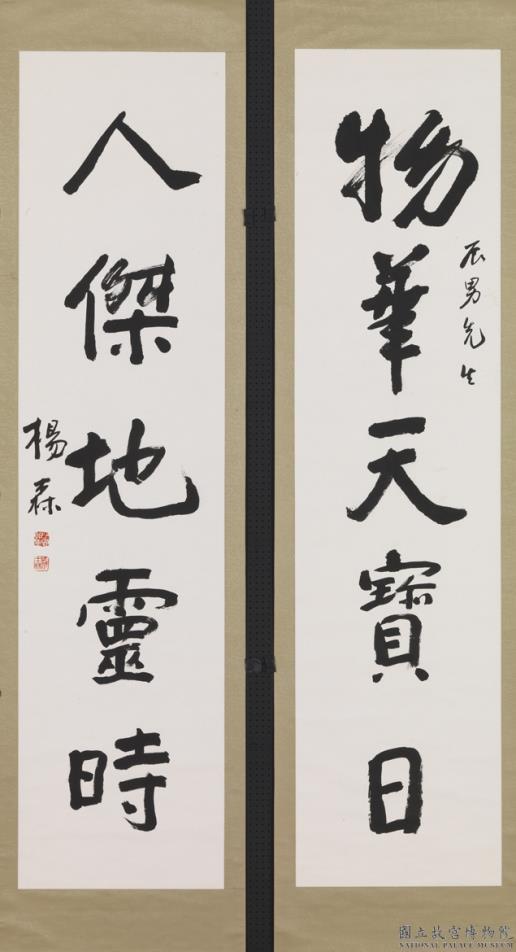 物華天寶日
辰男先生
人傑地靈時
楊森
國立故宮博物院
NATIONAL PALACE MUSEUM